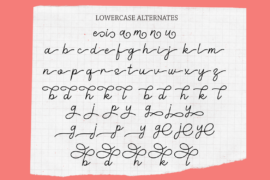 LOWERCASE ALTERNATES
e s i s a m n u
a b c d e f g h i j k l m
n o p q r s t u v w x y z
b d h k l b d h k l
g j p y g j y
g j p y g j y
b d h k l